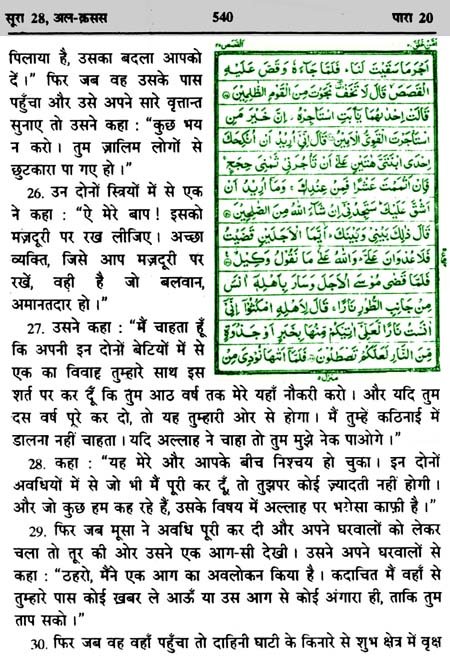 सूरा 28, अल-क़सस
540
पारा 20
पिलाया है, उसका बदला आपको
दें।” फिर जब वह उसके पास
पहुँचा और उसे अपने सारे वृत्तान्त
सुनाए तो उसने कहा : “कुछ भय
न करो। तुम ज़ालिम लोगों से
छुटकारा पा गए हो।”
26. उन दोनों स्त्रियों में से एक
ने कहा : “ऐ मेरे बाप! इसको
मज़दूरी पर रख लीजिए। अच्छा
व्यक्ति, जिसे आप मज़दूरी पर
रखें, वही है जो बलवान,
अमानतदार हो।”
27. उसने कहा : “मैं चाहता हूँ
कि अपनी इन दोनों बेटियों में से
एक का विवाह तुम्हारे साथ इस
اَجْرَ مَا سَقَيْتَ لَنَا ۚ فَلَمَّا جَآءَهٗ وَقَصَّ عَلَيْهِ
الْقَصَصَ قَالَ لَا تَخَفْ نَجَوْتَ مِنَ الْقَوْمِ الظّٰلِمِيْنَ
قَالَتْ اِحْدٰىهُمَا يٰٓاَبَتِ اسْتَاْجِرْهُ ۖ اِنَّ خَيْرَ مَنِ
اسْتَاْجَرْتَ الْقَوِيُّ الْاَمِيْنُ قَالَ اِنِّيْٓ اُرِيْدُ اَنْ اُنْكِحَكَ
اِحْدَى ابْنَتَيَّ هٰتَيْنِ عَلٰٓى اَنْ تَاْجُرَنِيْ ثَمٰنِيَ حِجَجٍ ۚ
فَاِنْ اَتْمَمْتَ عَشْرًا فَمِنْ عِنْدِكَ ۚ وَمَآ اُرِيْدُ اَنْ
اَشُقَّ عَلَيْكَ ۭ سَتَجِدُنِيْٓ اِنْ شَآءَ اللّٰهُ مِنَ الصّٰلِحِيْنَ
قَالَ ذٰلِكَ بَيْنِيْ وَبَيْنَكَ ۭ اَيَّمَا الْاَجَلَيْنِ قَضَيْتُ
فَلَا عُدْوَانَ عَلَيَّ ۭ وَاللّٰهُ عَلٰى مَا نَقُوْلُ وَكِيْلٌ
فَلَمَّا قَضٰى مُوْسَى الْاَجَلَ وَسَارَ بِاَهْلِهٖٓ اٰنَسَ
مِنْ جَانِبِ الطُّوْرِ نَارًا ۚ قَالَ لِاَهْلِهِ امْكُثُوْٓا اِنِّيْٓ
اٰنَسْتُ نَارًا لَّعَلِّيْٓ اٰتِيْكُمْ مِّنْهَا بِخَبَرٍ اَوْ جَذْوَةٍ
مِّنَ النَّارِ لَعَلَّكُمْ تَصْطَلُوْنَ فَلَمَّآ اَتٰىهَا نُوْدِيَ مِنْ
शर्त पर कर दूँ कि तुम आठ वर्ष तक मेरे यहाँ नौकरी करो। और यदि तुम
दस वर्ष पूरे कर दो, तो यह तुम्हारी ओर से होगा। मैं तुम्हें कठिनाई में
डालना नहीं चाहता। यदि अल्लाह ने चाहा तो तुम मुझे नेक पाओगे।”
28. कहा : “यह मेरे और आपके बीच निश्चय हो चुका। इन दोनों
अवधियों में से जो भी मैं पूरी कर दूँ, तो तुझपर कोई ज़्यादती नहीं होगी।
और जो कुछ हम कह रहे हैं, उसके विषय में अल्लाह पर भरोसा काफ़ी है।”
29. फिर जब मूसा ने अवधि पूरी कर दी और अपने घरवालों को लेकर
चला तो तूर की ओर उसने एक आग-सी देखी। उसने अपने घरवालों से
कहा : “ठहरो, मैंने एक आग का अवलोकन किया है। कदाचित मैं वहाँ से
तुम्हारे पास कोई ख़बर ले आऊँ या उस आग से कोई अंगारा ही, ताकि तुम
ताप सको।”
30. फिर जब वह वहाँ पहुँचा तो दाहिनी घाटी के किनारे से शुभ क्षेत्र में वृक्ष